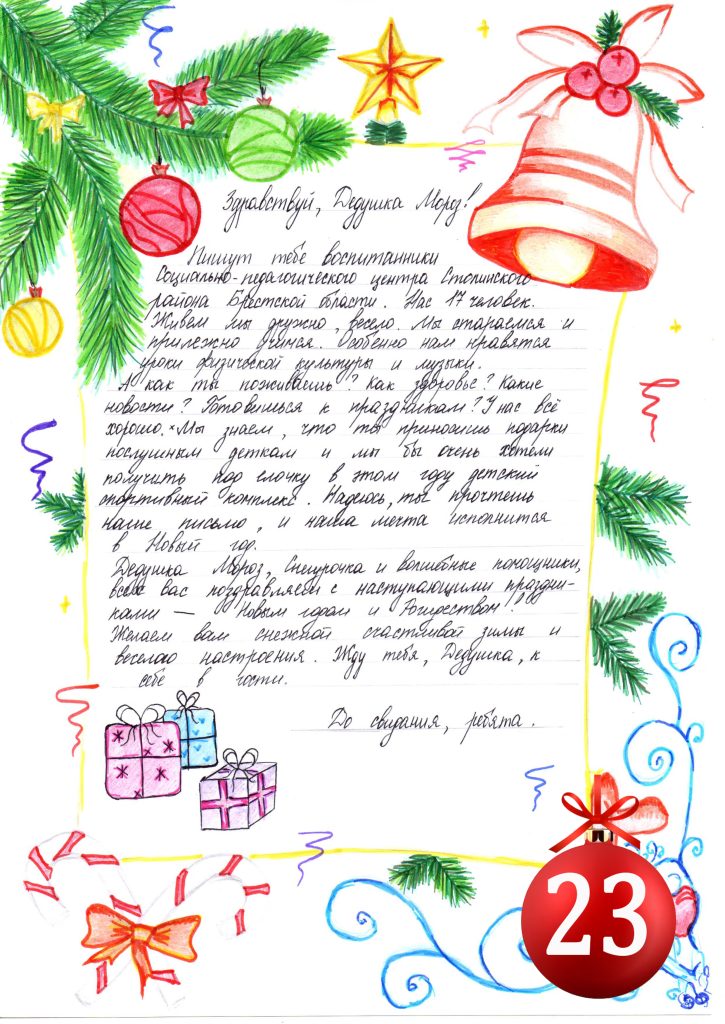 Здравствуй, Дедушка Мороз!
Пишут тебе воспитанники
Социально-педагогического центра Столинского
района Брестской области. Нас 17 человек.
Живем мы дружно, весело. Мы стараемся и
прилежно учимся. Особенно нам нравятся
уроки физической культуры и музыки.
А как ты поживаешь? Как здоровье? Какие
новости? Готовишься к праздникам? У нас всё
хорошо. Мы знаем, что ты приносишь подарки
послушным деткам и мы бы очень хотели
получить под елочку в этом году детский
спортивный комплекс. Надеюсь, ты прочтешь
наше письмо, и наша мечта исполнится
в Новый год.
Дедушка Мороз, Снегурочка и волшебные помощники,
всех вас поздравляем с наступающими праздни-
ками — Новым годом и Рождеством!!!
Желаем вам снежной счастливой зимы и
веселого настроения. Жду тебя, Дедушка, к
себе в гости.
До свидания, ребята.
23